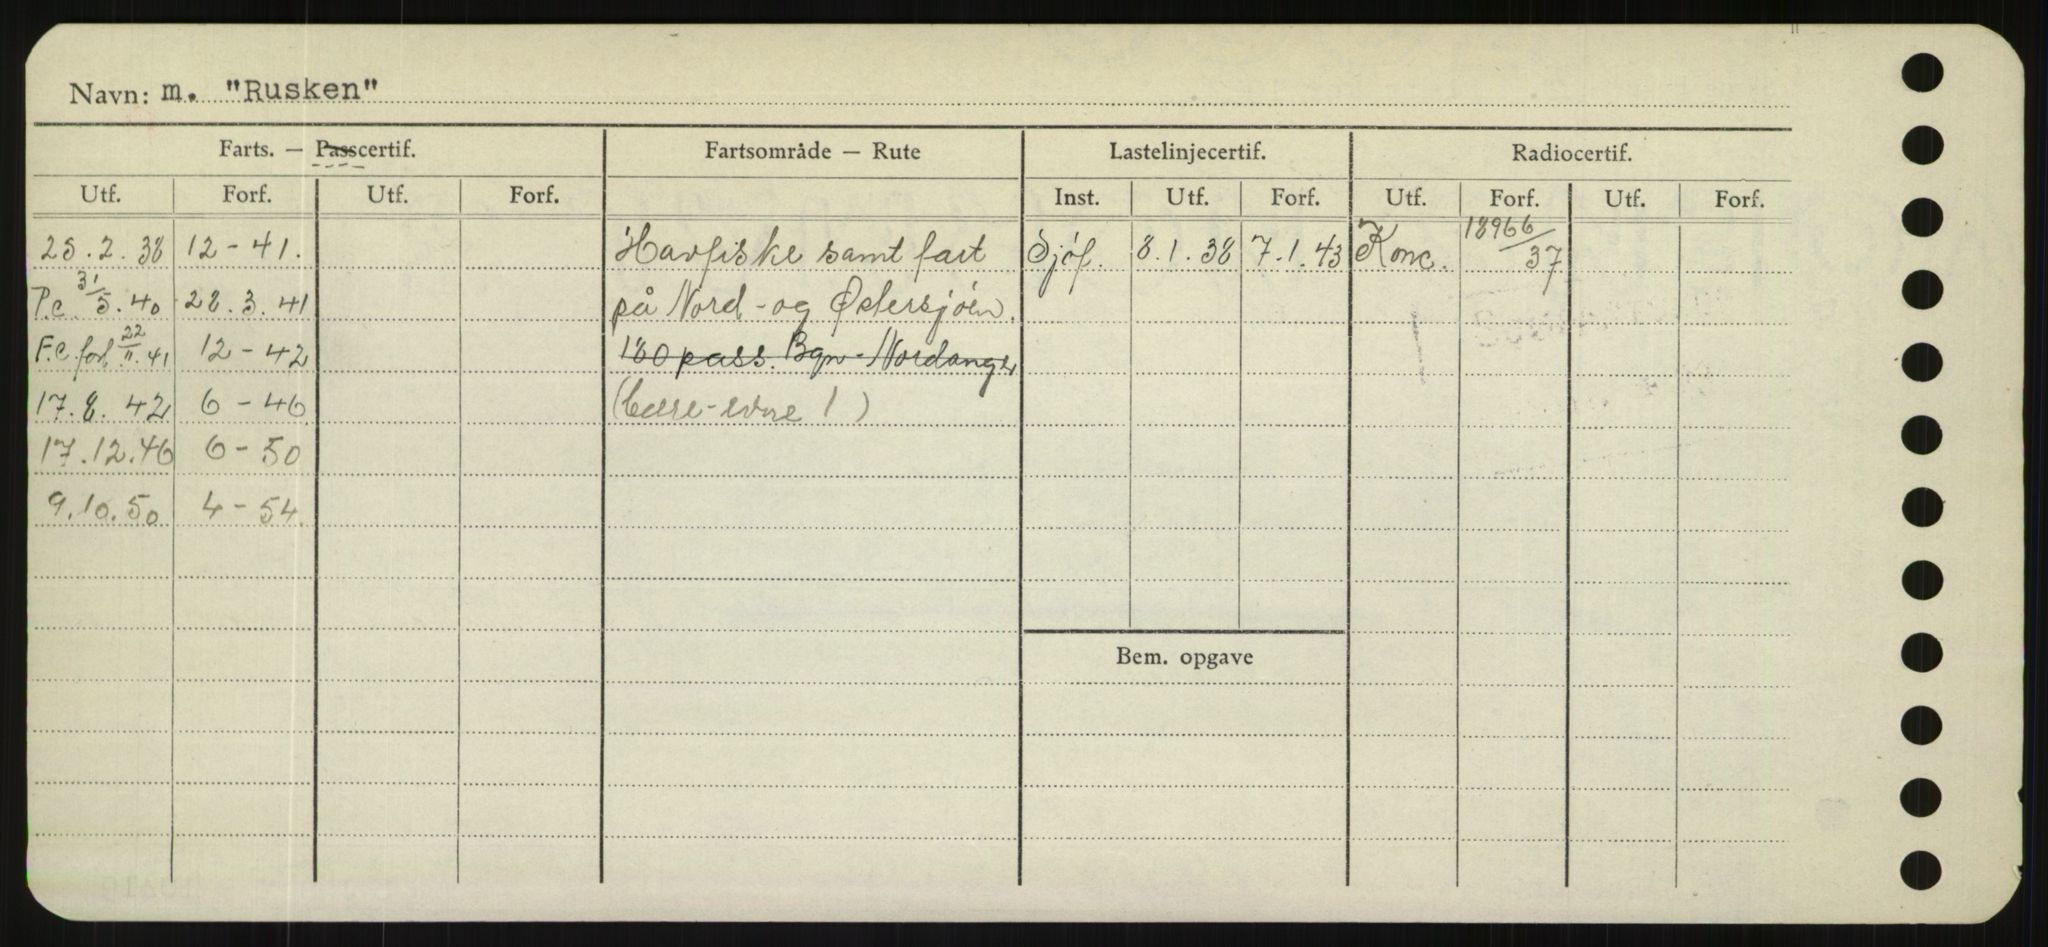 Navn: m. "Rusken"
Farts. — Passcertif. Fartsområde — Rute Lastelinjecertif. Radiocertif.
Utf. Forf. Utf. Forf. Inst. Utf. Forf. Utf. Forf. Utf. Forf.
25.2.38 12-41. Havfiske samt fart Sjöf. 8.1.38 7.1.43 Konc. 18966/37
P.c. 31/5.40 28.3.41 på Nord- og Østersjöen.
F.C. forl. 22/11.41 12-42 180 pass. Bgn-Nordanger
17.8.42 6-46 (bære-evne 1)
17.12.46 6-50
9.10.50 4-54
Bem. opgave